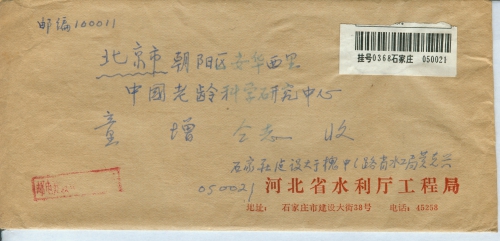 邮编100011
挂号0368石家庄 050021
北京市朝阳区安华西里
中國老龄科学研究中心
童 增 仝志 收
石家庄建设大街槐中路省水工局
050021
河北省水利厅工程局
地址: 石家庄市建设大街38号 电话: 45353